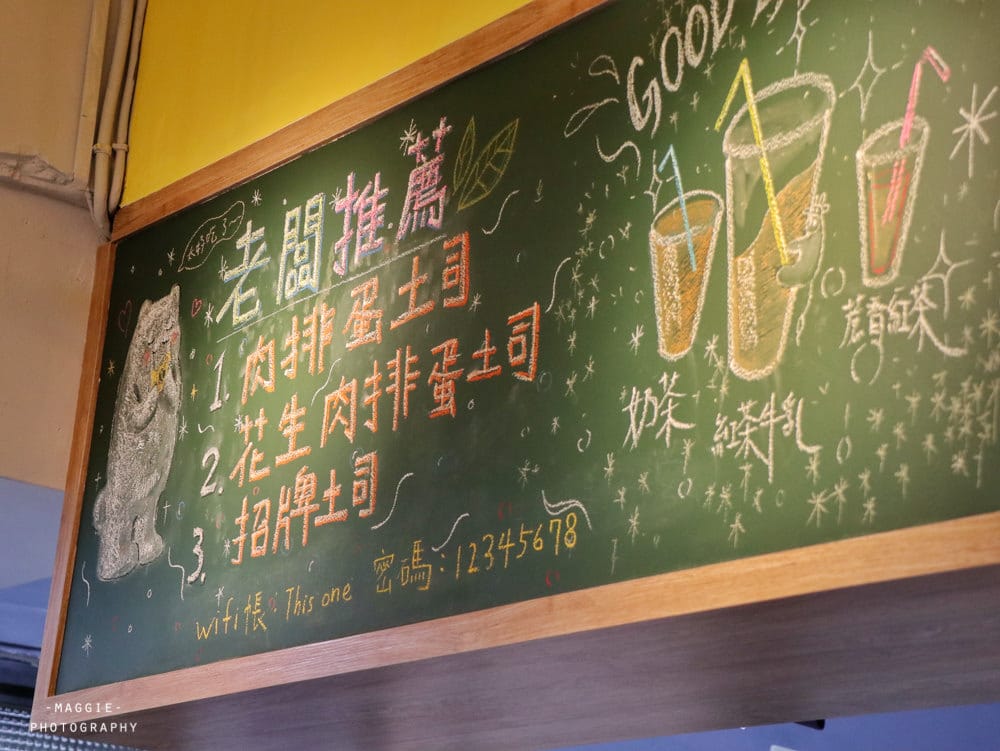 GOOD
太好吃了~
老闆推薦
1. 肉排蛋土司
2. 花生肉排蛋土司
3. 招牌土司
wifi帳:This one 密碼:12345678
奶茶
紅茶牛乳
蔗香紅茶
-MAGGIE-
PHOTOGRAPHY